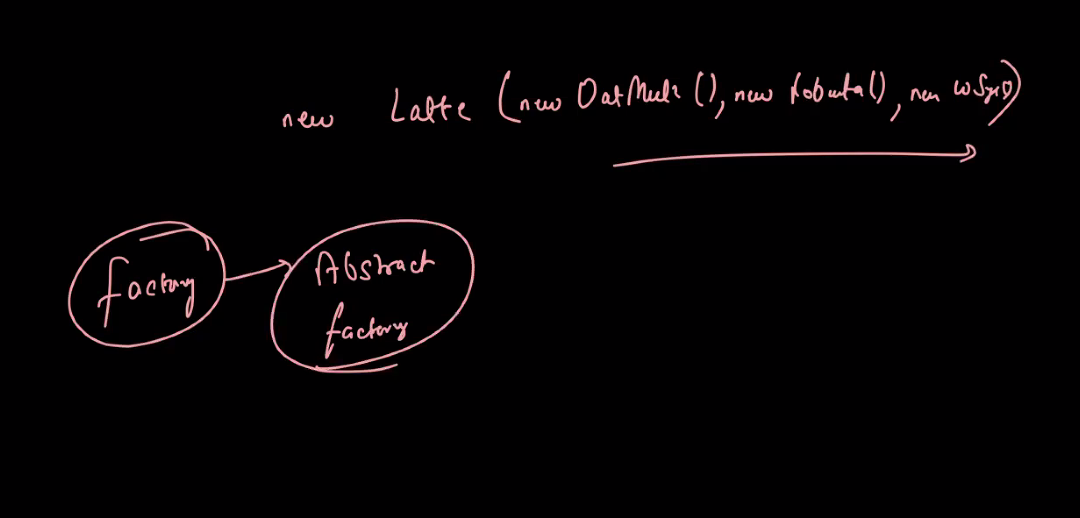 new Latte (new OatMilk(), new Robusta(), new
factory
Abstract
factory